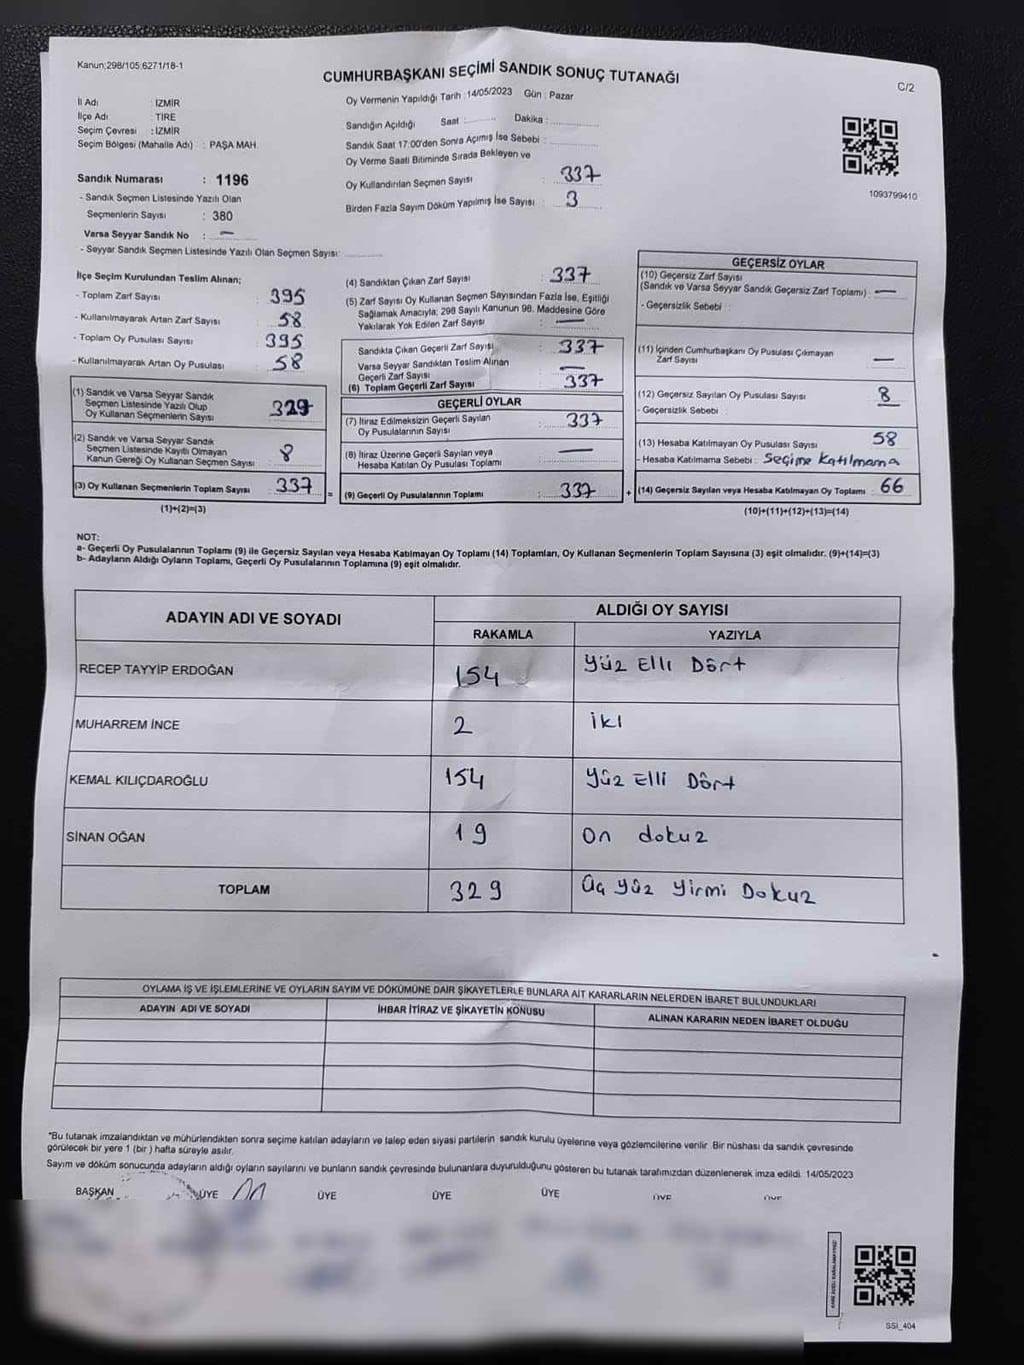 Kanun;298/105,6271/18-1
CUMHURBAŞKANI SEÇİMİ SANDIK SONUÇ TUTANAĞI
C/2
İl Adı : İZMİR
İlçe Adı : TİRE
Seçim Çevresi : İZMİR
Seçim Bölgesi (Mahalle Adı) : PAŞA MAH.
Oy Vermenin Yapıldığı Tarih : 14/05/2023 Gün : Pazar
Sandığın Açıldığı Saat :.......... Dakika :..............
Sandık Saat 17:00'den Sonra Açımış İse Sebebi :..............
Oy Verme Saati Bitiminde Sırada Bekleyen ve
Oy Kullandırılan Seçmen Sayısı : 337
Birden Fazla Sayım Döküm Yapılmış İse Sayısı : 3
1093799410
Sandık Numarası : 1196
- Sandık Seçmen Listesinde Yazılı Olan
Seçmenlerin Sayısı : 380
Varsa Seyyar Sandık No : —
- Seyyar Sandık Seçmen Listesinde Yazılı Olan Seçmen Sayısı:..............
İlçe Seçim Kurulundan Teslim Alınan;
- Toplam Zarf Sayısı : 395
- Kullanılmayarak Artan Zarf Sayısı : 58
- Toplam Oy Pusulası Sayısı : 395
- Kullanılmayarak Artan Oy Pusulası : 58
(1) Sandık ve Varsa Seyyar Sandık
Seçmen Listesinde Yazılı Olup
Oy Kullanan Seçmenlerin Sayısı : 329
(2) Sandık ve Varsa Seyyar Sandık
Seçmen Listesinde Kayıtlı Olmayan
Kanun Gereği Oy Kullanan Seçmen Sayısı : 8
(3) Oy Kullanan Seçmenlerin Toplam Sayısı : 337
(1)+(2)=(3)
(4) Sandıktan Çıkan Zarf Sayısı : 337
(5) Zarf Sayısı Oy Kullanan Seçmen Sayısından Fazla İse, Eşitliği
Sağlamak Amacıyla; 298 Sayılı Kanunun 98. Maddesine Göre
Yakılarak Yok Edilen Zarf Sayısı : —
Sandıkta Çıkan Geçerli Zarf Sayısı : 337
Varsa Seyyar Sandıktan Teslim Alınan
Geçerli Zarf Sayısı : —
(6) Toplam Geçerli Zarf Sayısı : 337
GEÇERLİ OYLAR
(7) İtiraz Edilmeksizin Geçerli Sayılan
Oy Pusulalarının Sayısı : 337
(8) İtiraz Üzerine Geçerli Sayılan veya
Hesaba Katılan Oy Pusulası Toplamı : —
= (9) Geçerli Oy Pusulalarının Toplamı : 337 +
GEÇERSİZ OYLAR
(10) Geçersiz Zarf Sayısı
(Sandık ve Varsa Seyyar Sandık Geçersiz Zarf Toplamı) : —
- Geçersizlik Sebebi :
(11) İçinden Cumhurbaşkanı Oy Pusulası Çıkmayan
Zarf Sayısı : —
(12) Geçersiz Sayılan Oy Pusulası Sayısı : 8
- Geçersizlik Sebebi :
(13) Hesaba Katılmayan Oy Pusulası Sayısı : 58
- Hesaba Katılmama Sebebi : Seçime Katılmama
(14) Geçersiz Sayılan veya Hesaba Katılmayan Oy Toplamı : 66
(10)+(11)+(12)+(13)=(14)
NOT:
a- Geçerli Oy Pusulalarının Toplamı (9) ile Geçersiz Sayılan veya Hesaba Katılmayan Oy Toplamı (14) Toplamları, Oy Kullanan Seçmenlerin Toplam Sayısına (3) eşit olmalıdır. (9)+(14)=(3)
b- Adayların Aldığı Oyların Toplamı, Geçerli Oy Pusulalarının Toplamına (9) eşit olmalıdır.
ADAYIN ADI VE SOYADI
ALDIĞI OY SAYISI
RAKAMLA YAZIYLA
RECEP TAYYİP ERDOĞAN 154 Yüz Elli Dört
MUHARREM İNCE 2 İki
KEMAL KILIÇDAROĞLU 154 Yüz Elli Dört
SİNAN OĞAN 19 On dokuz
TOPLAM 329 Üç Yüz Yirmi Dokuz
OYLAMA İŞ VE İŞLEMLERİNE VE OYLARIN SAYIM VE DÖKÜMÜNE DAİR ŞİKAYETLERLE BUNLARA AİT KARARLARIN NELERDEN İBARET BULUNDUKLARI
ADAYIN ADI VE SOYADI İHBAR İTİRAZ VE ŞİKAYETİN KONUSU ALINAN KARARIN NEDEN İBARET OLDUĞU
*Bu tutanak imzalandıktan ve mühürlendikten sonra seçime katılan adayların ve talep eden siyasi partilerin sandık kurulu üyelerine veya gözlemcilerine verilir. Bir nüshası da sandık çevresinde
görülecek bir yere 1 (bir) hafta süreyle asılır.
Sayım ve döküm sonucunda adayların aldığı oyların sayılarını ve bunların sandık çevresinde bulunanlara duyurulduğunu gösteren bu tutanak tarafımızdan düzenlenerek imza edildi. 14/05/2023
BAŞKAN ÜYE ÜYE ÜYE ÜYE ÜYE ÜYE
SSİ_404